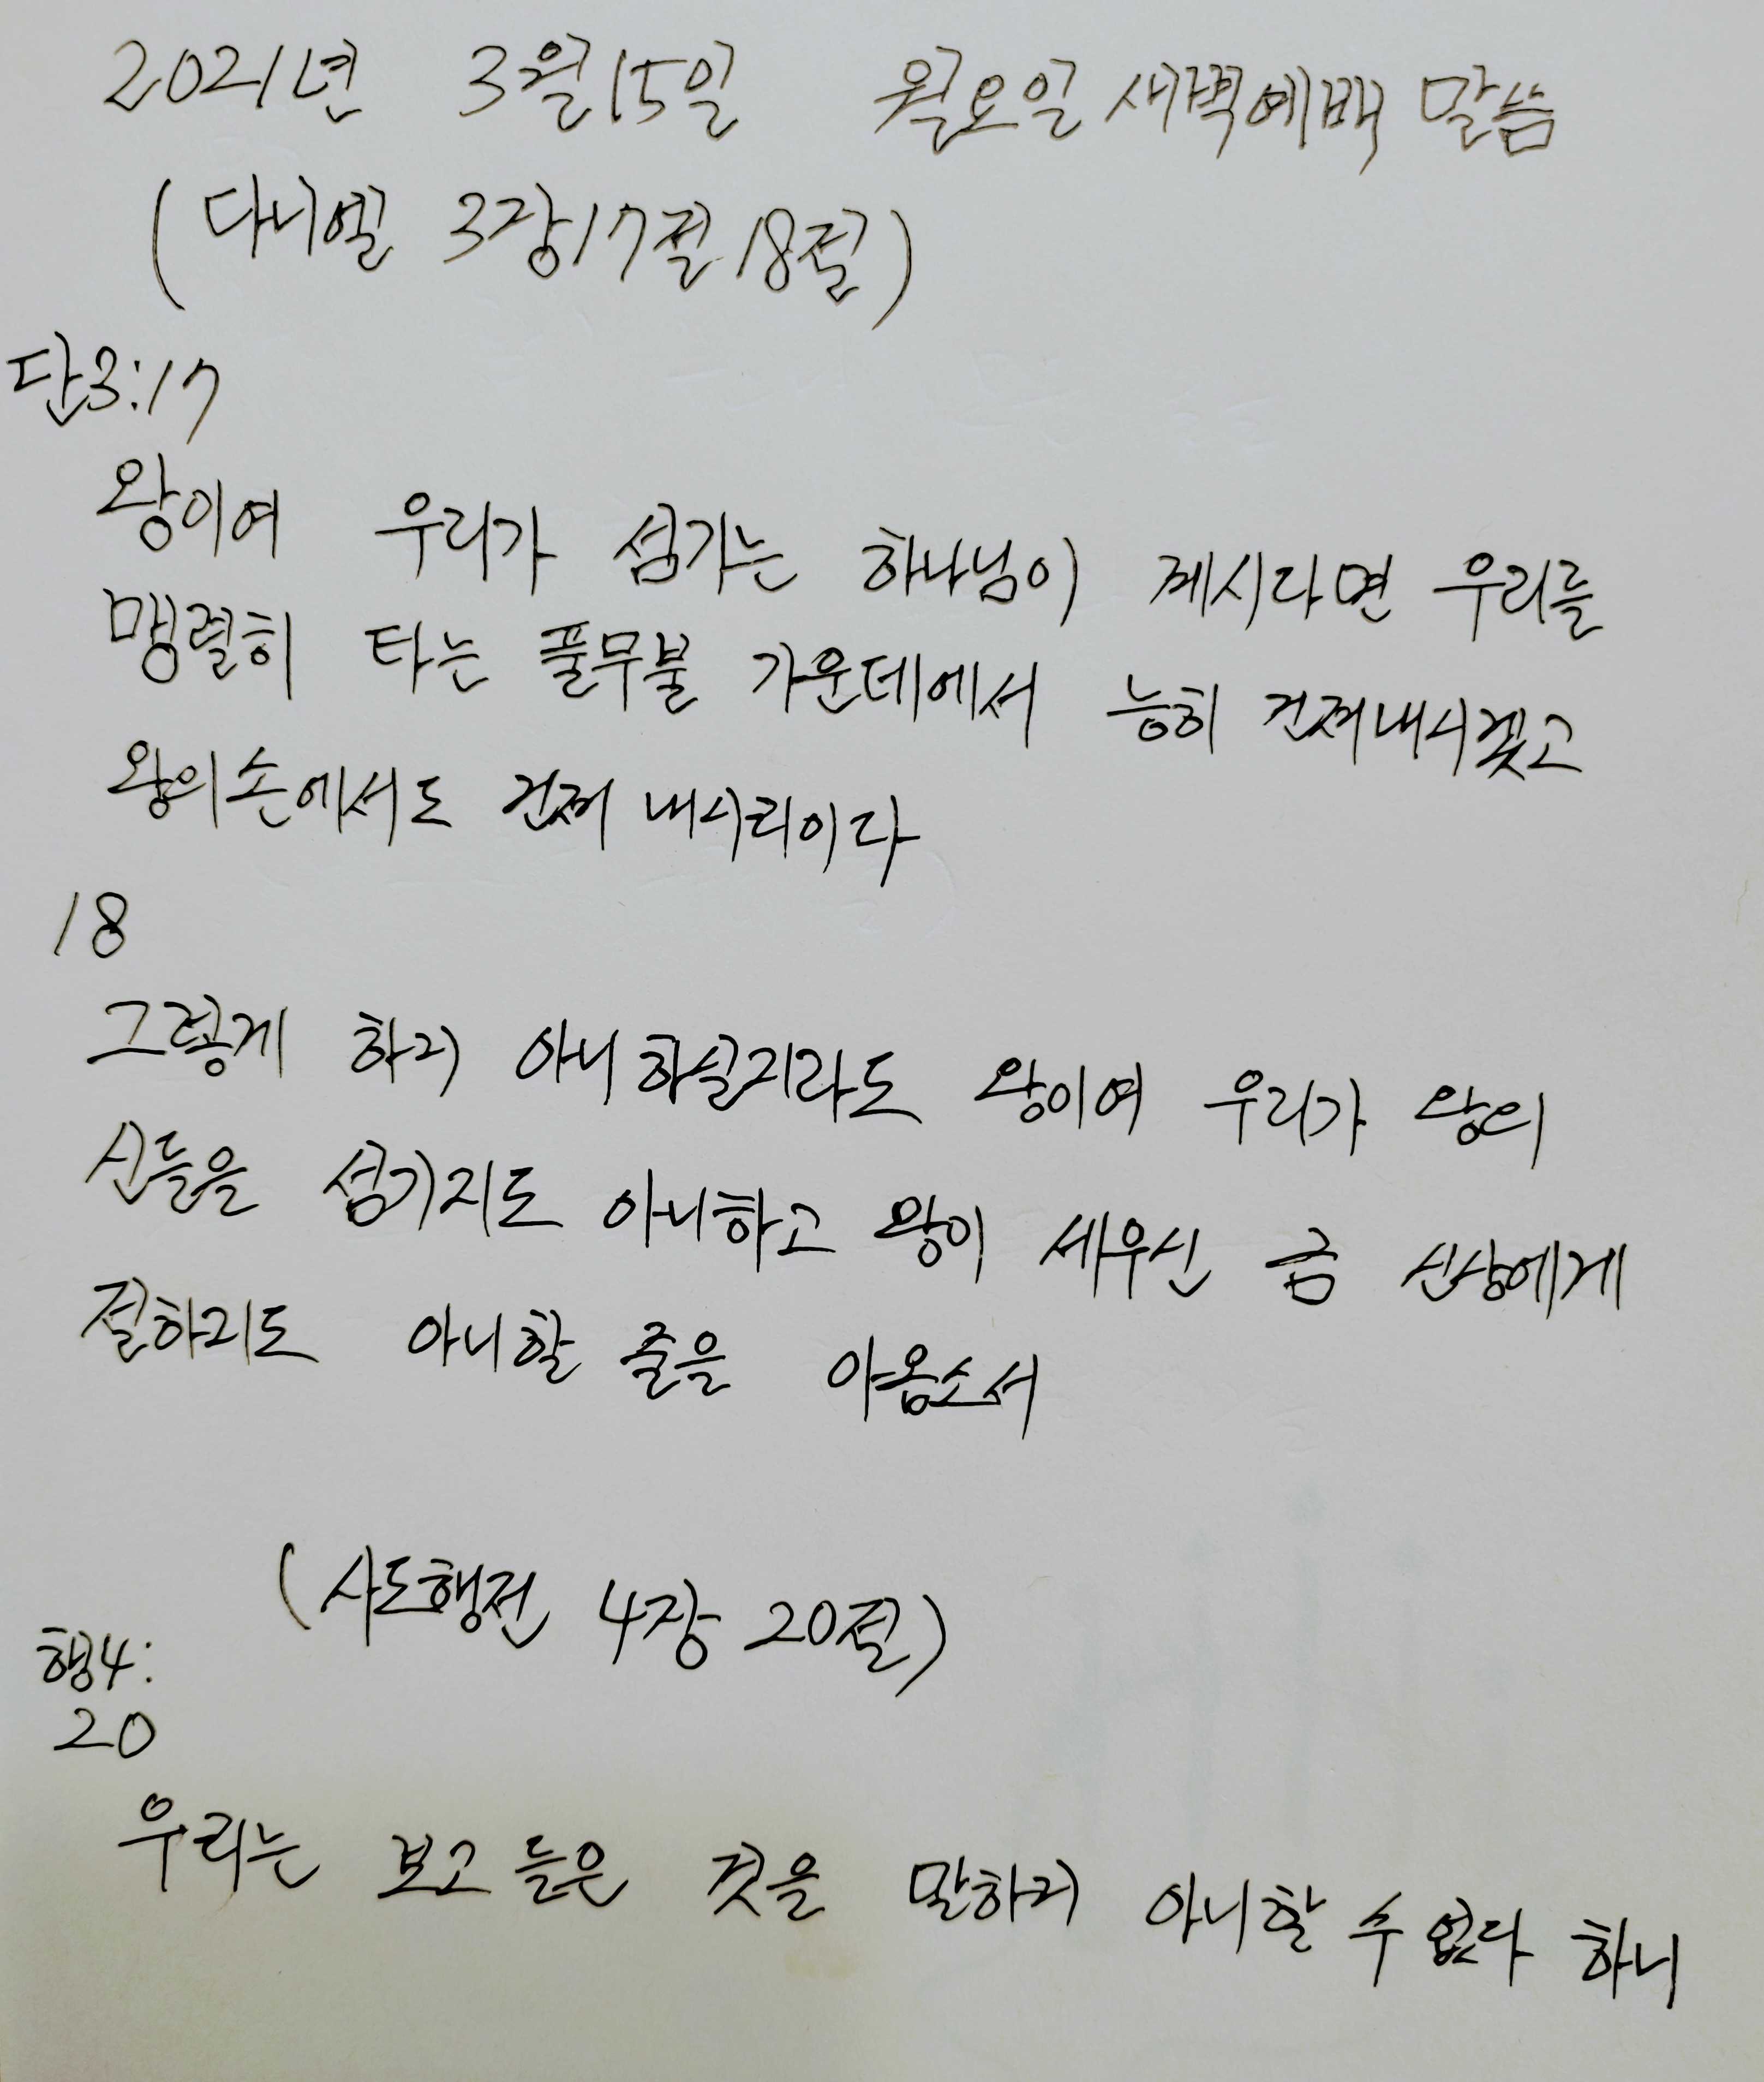 2021년 3월15일 월요일 새벽예배 말씀
(다니엘 3장17절 18절)
단3:17
왕이여 우리가 섬기는 하나님이 계시다면 우리를
맹렬히 타는 풀무불 가운데에서 능히 건져내시겠고
왕의손에서도 건져 내시리이다
18
그렇게 하지 아니하실지라도 왕이여 우리가 왕의
신들을 섬기지도 아니하고 왕이 세우신 금 신상에게
절하지도 아니할 줄을 아옵소서
(사도행전 4장 20절)
행4:
20
우리는 보고 들은 것을 말하지 아니할 수 없다 하니